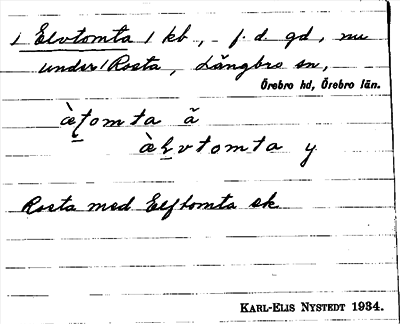 1 Elvtomta / kb., f. d. gd, nu
under 1 Rosta, Längbro sn,
Örebro hd, Örebro län.
æ̀tomta ä
æ̀lvtomta y
Rosta med Elftomta sk
KARL-ELIS NYSTEDT 1934.